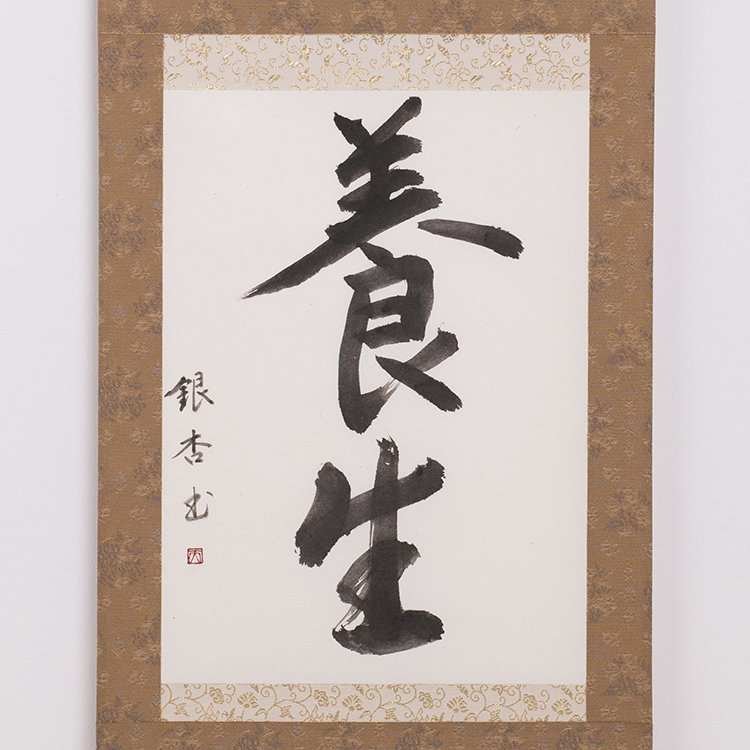 養生
銀杏书